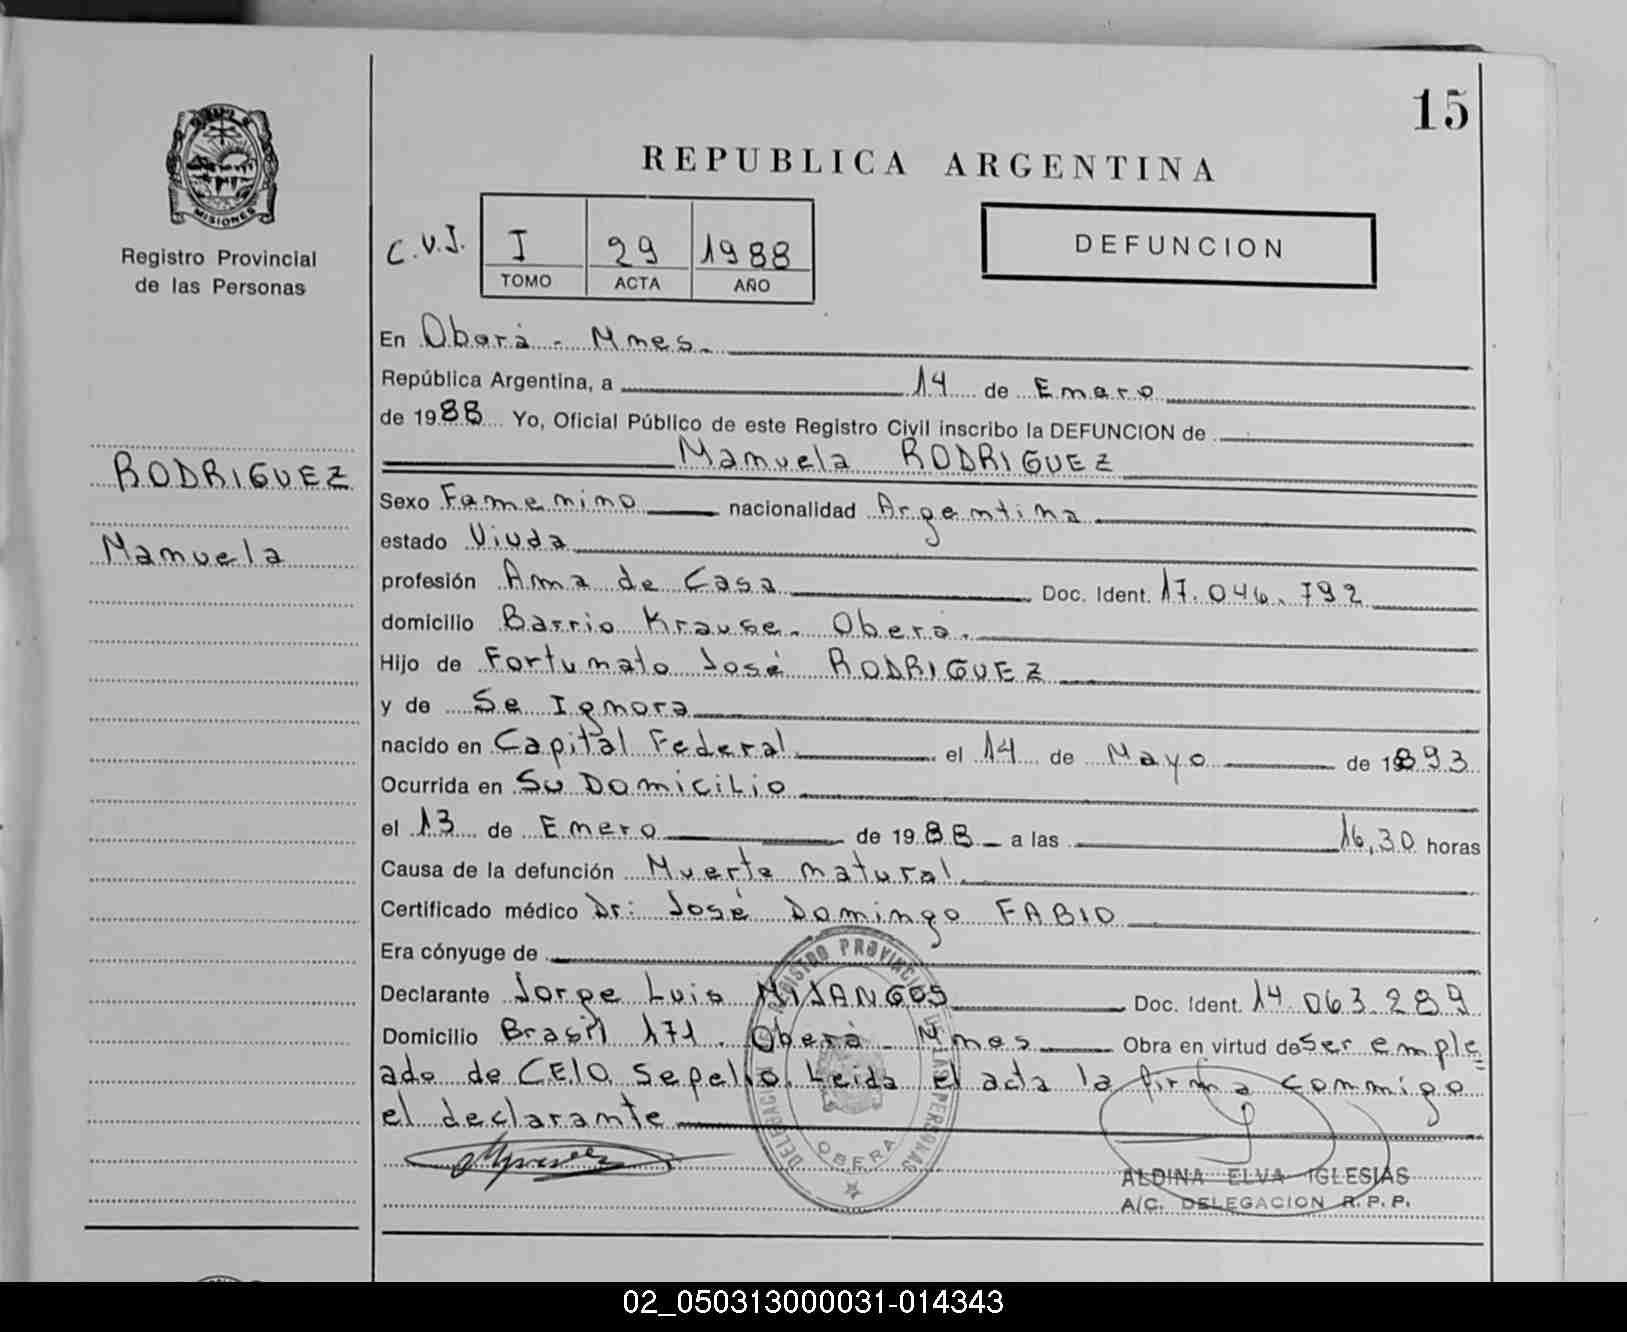 15
REPUBLICA ARGENTINA
MISIONES
Registro Provincial
de las Personas
C.V.J. I 29 1988
TOMO ACTA AÑO
DEFUNCION
En Oberá - Mnes.
República Argentina, a 14 de Enero
de 1988 Yo, Oficial Público de este Registro Civil inscribo la DEFUNCION de
Manuela RODRIGUEZ
RODRIGUEZ
Manuela
Sexo Femenino nacionalidad Argentina
estado Viuda
profesión Ama de Casa Doc. Ident. 17.046.792
domicilio Barrio Krause. Oberá.
Hijo de Fortunato José RODRIGUEZ
y de Se Ignora
nacido en Capital Federal el 14 de Mayo de 1893
Ocurrida en Su Domicilio
el 13 de Enero de 1988 a las 16,30 horas
Causa de la defunción Muerte natural.
Certificado médico Dr: José Domingo FABIO
Era cónyuge de
Declarante Jorge Luis MIJANGOS Doc. Ident. 14.063.289
Domicilio Brasil 171. Oberá - Mnes Obra en virtud de Ser emple=
ado de CELO Sepelio. Leida el acta la firma conmigo
el declarante
DELEGACION REGISTRO PROVINCIAL DE LAS PERSONAS
OBERA
ALDINA ELVA IGLESIAS
A/C. DELEGACION R.P.P.
02_050313000031-014343